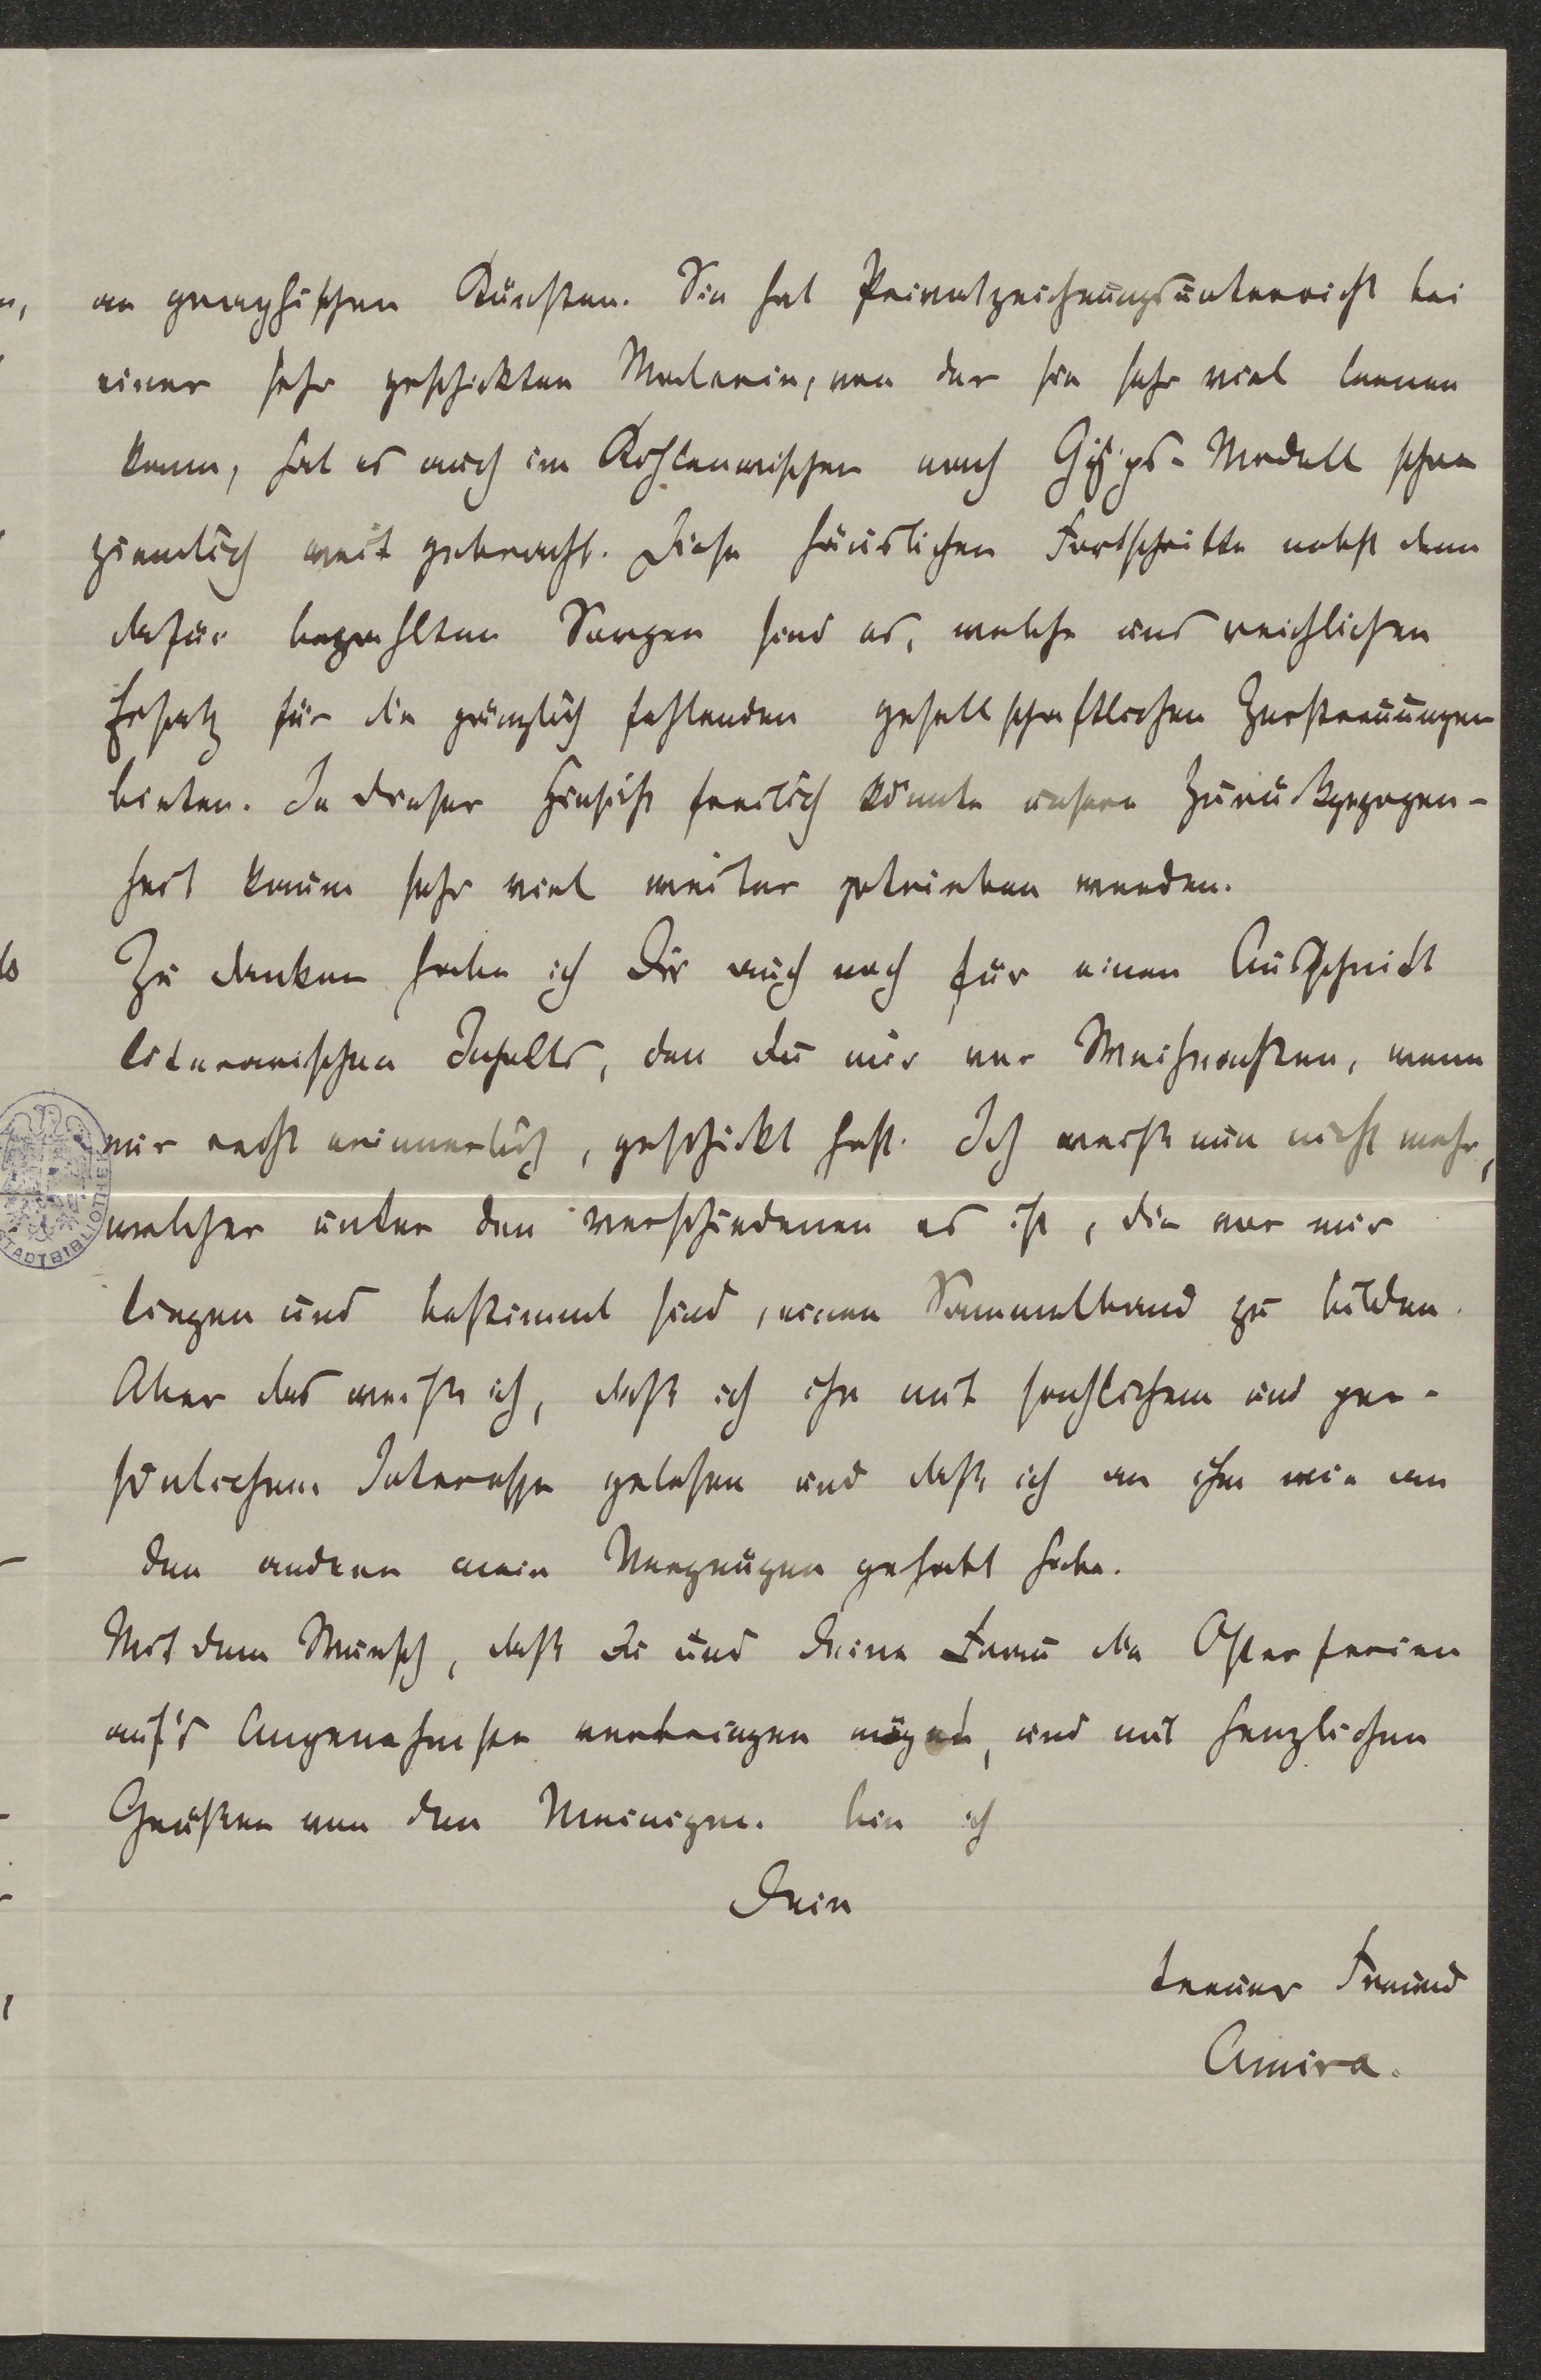 an graphischen Künsten. Sie hat Privatzeichnungsunterricht bei
einer sehr geschickten Malerin, von der sie sehr viel lernen
kann, hat es auch im Kohlenwischen nach Gyps-Modell schon
ziemlich weit gebracht. Diese häuslichen Fortschritte nebst den
dafür bezahlten Sorgen sind es, welche uns reichlichen
Ersatz für die gänzlich fehlenden gesellschaftlichen Zerstreuungen
bieten. In dieser Hinsicht freilich könnte unsere Zurückgezogen-
heit kaum sehr viel weiter getrieben werden.
Zu danken habe ich Dir auch noch für einen Ausschnitt
literarischen Inhalts, den Du mir vor Weihnachten, wenn
mir recht erinnerlich, geschickt hast. Ich weiß nun nicht mehr,
welcher unter den verschiedenen es ist, die vor mir
liegen und bestimmt sind, einen Sammelband zu bilden.
Aber das weiß ich, daß ich ihn mit sachlichem und per-
sönlichem Interesse gelesen und daß ich an ihm wie an
den andern mein Vergnügen gehabt habe.
Mit dem Wunsch, daß Du und Deine Frau die Osterferien
auf's Angenehmste verbringen mögen, und mit herzlichen
Grüßen von den Meinigen bin ich
Dein
treuer Freund
Amira.
STADTBIBLIOTHEK